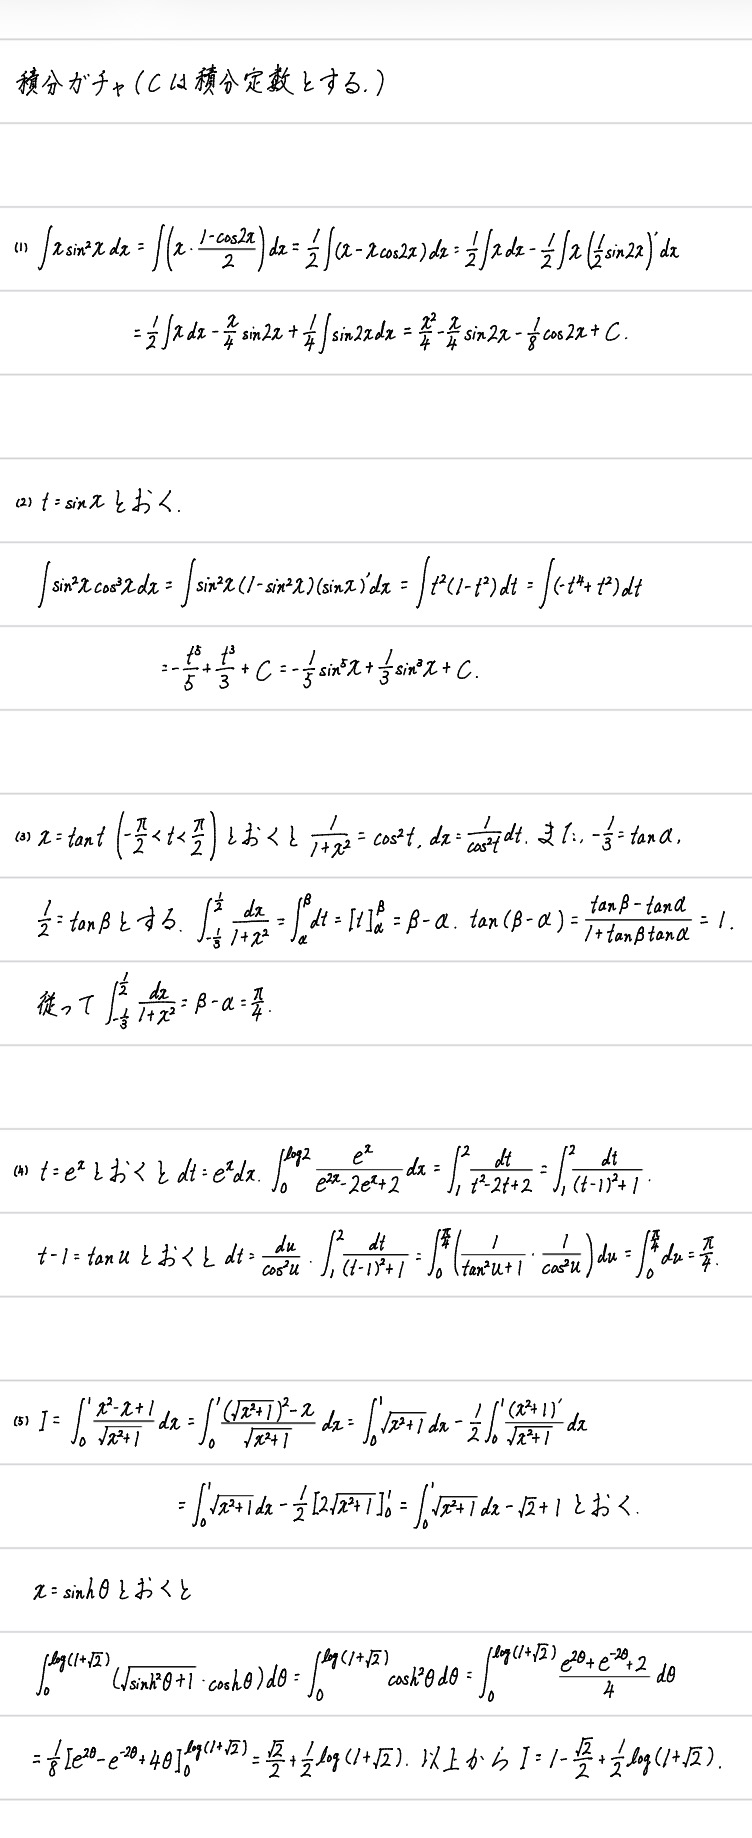 積分ガチャ(Cは積分定数とする.)
(1) ∫x sin²x dx = ∫(x・(1-cos2x)/2)dx = 1/2∫(x-x cos2x)dx = 1/2∫x dx - 1/2∫x(1/2 sin2x)′dx
= 1/2∫x dx - x/4 sin2x + 1/4∫sin2x dx = x²/4 - x/4 sin2x - 1/8 cos2x + C.
(2) t = sin x とおく.
∫sin²x cos³x dx = ∫sin²x(1-sin²x)(sin x)′dx = ∫t²(1-t²)dt = ∫(-t⁴+t²)dt
= -t⁵/5 + t³/3 + C = -1/5 sin⁵x + 1/3 sin³x + C.
(3) x = tan t (-π/2 < t < π/2) とおくと 1/(1+x²) = cos²t, dx = 1/cos²t dt. また, -1/3 = tanα,
1/2 = tanβ とする. ∫_{-1/3}^{1/2} dx/(1+x²) = ∫_α^β dt = [t]_α^β = β-α. tan(β-α) = (tanβ-tanα)/(1+tanβtanα) = 1.
従って ∫_{-1/3}^{1/2} dx/(1+x²) = β-α = π/4.
(4) t = eˣ とおくと dt = eˣdx. ∫_0^{log2} eˣ/(e²ˣ-2eˣ+2) dx = ∫_1^2 dt/(t²-2t+2) = ∫_1^2 dt/((t-1)²+1).
t-1 = tan u とおくと dt = du/cos²u. ∫_1^2 dt/((t-1)²+1) = ∫_0^{π/4} (1/(tan²u+1)・1/cos²u)du = ∫_0^{π/4} du = π/4.
(5) I = ∫_0^1 (x²-x+1)/√(x²+1) dx = ∫_0^1 ((√(x²+1))²-x)/√(x²+1) dx = ∫_0^1 √(x²+1) dx - 1/2∫_0^1 (x²+1)′/√(x²+1) dx
= ∫_0^1 √(x²+1) dx - 1/2[2√(x²+1)]_0^1 = ∫_0^1 √(x²+1) dx - √2 + 1 とおく.
x = sinhθ とおくと
∫_0^{log(1+√2)} (√(sinh²θ+1)・coshθ)dθ = ∫_0^{log(1+√2)} cosh²θ dθ = ∫_0^{log(1+√2)} (e^{2θ}+e^{-2θ}+2)/4 dθ
= 1/8[e^{2θ}-e^{-2θ}+4θ]_0^{log(1+√2)} = √2/2 + 1/2 log(1+√2). 以上から I = 1 - √2/2 + 1/2 log(1+√2).